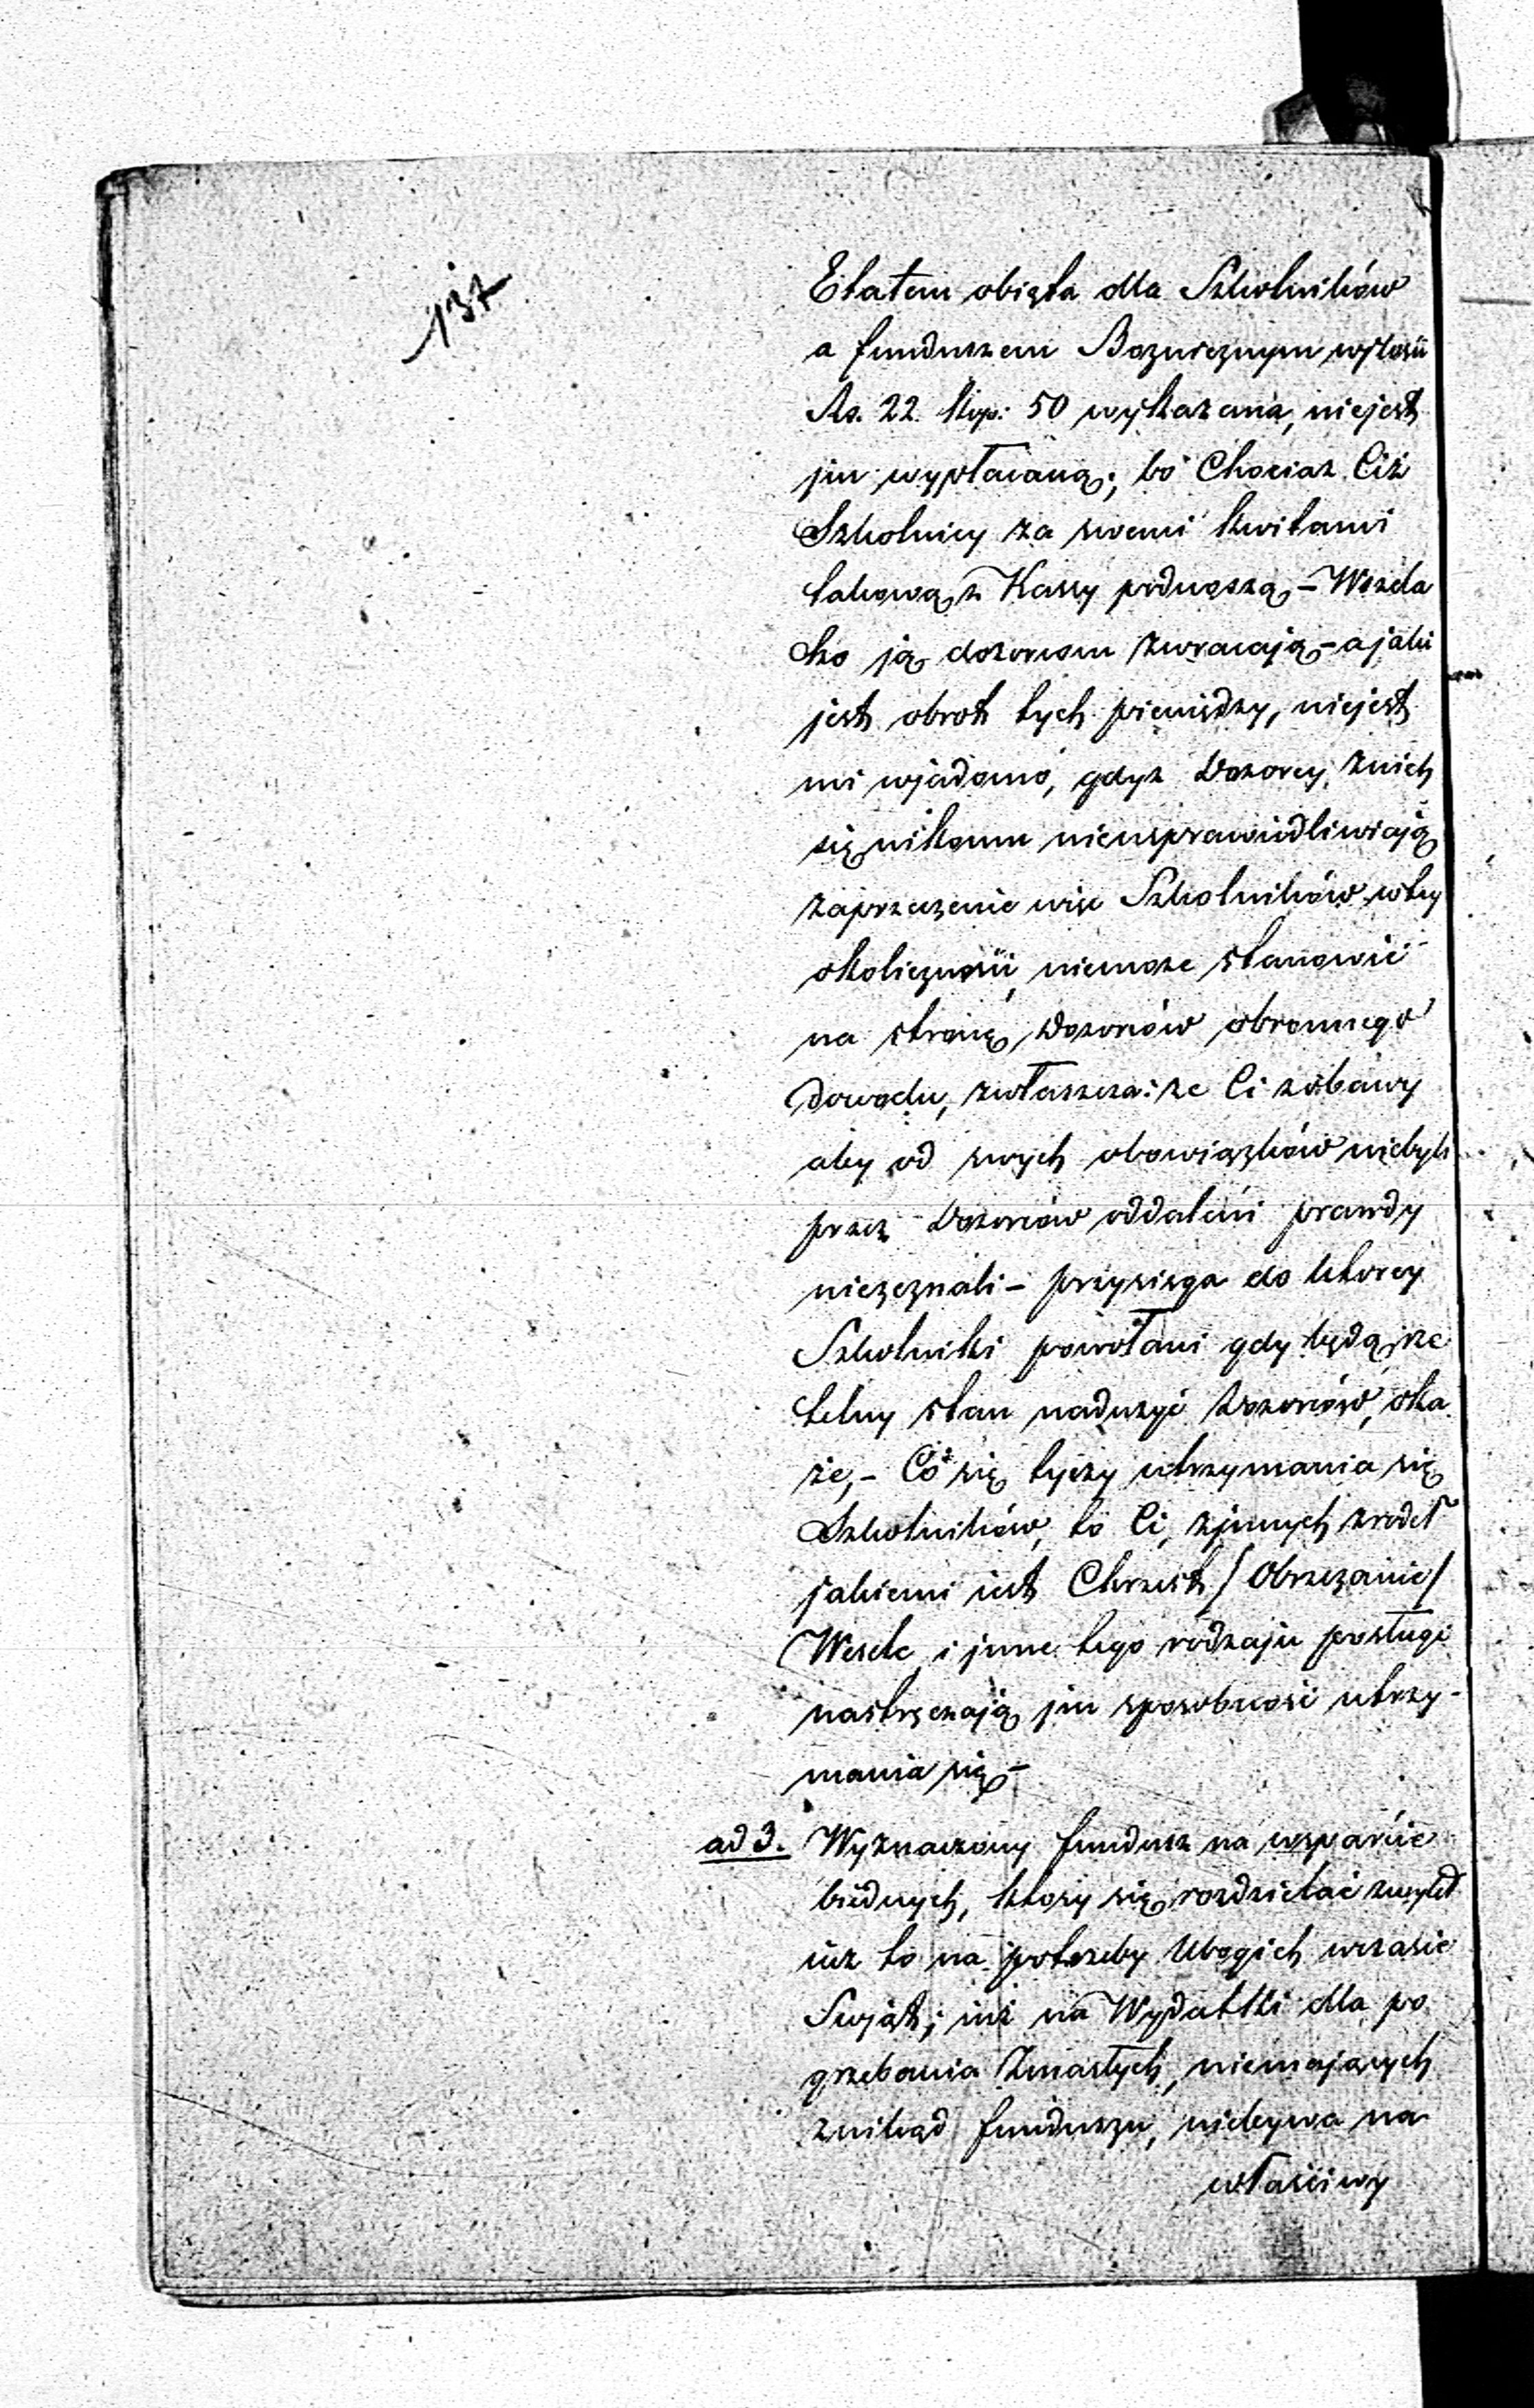 137
Etatem obięta dla Szkolników
a funduszem Boznicznym wjlosci
Rs. 22 Kop: 50 wykazana, niejest
jm wypłacaną; bo Chociaz Ciż
Szkolnicy za swemi kwitami
takową z Kassy podnoszą – Wszela
ko ją dozorcom zwracają – a jaki
jest obrot tych pieniędzy, niejest
mi wjadomo, gdyz Dozorcy, znich
się nikomu nieusprawiedliwiają
zaprzeczenie więc Szkolników wtey
okoliczności, niemoze stanowić
na stronę Dozorców obronnego
Dowodu, zwłaszcza: że Ci zobawy
aby od swych obowiązków niebyli
przez Dozorców oddaleni prawdy
niezeznali – przysięga do ktorey
Szkolniki powołani gdy będą, rze
telny stan naduzyć Dozorców, oka
że, – Co się tyczy utrzymania się
Szkolników, to Ci, zjnnych zrodeł
jakiemi iest Chrzest / Obrzezanie /
Wesele i jnne tego rodzaju posługi
nastręczają jm sposobność utrzy-
mania się –
ad 3. Wyznaczony fundusz na wsparcie
biednych, ktory się rozdzielać zwykł
iuz to na potrzeby Ubogich wczasie
Swjąt; iuż na Wydatki dla po
grzebania Zmarłych, niemających
znikąd funduszu, niebywa na
właściwy